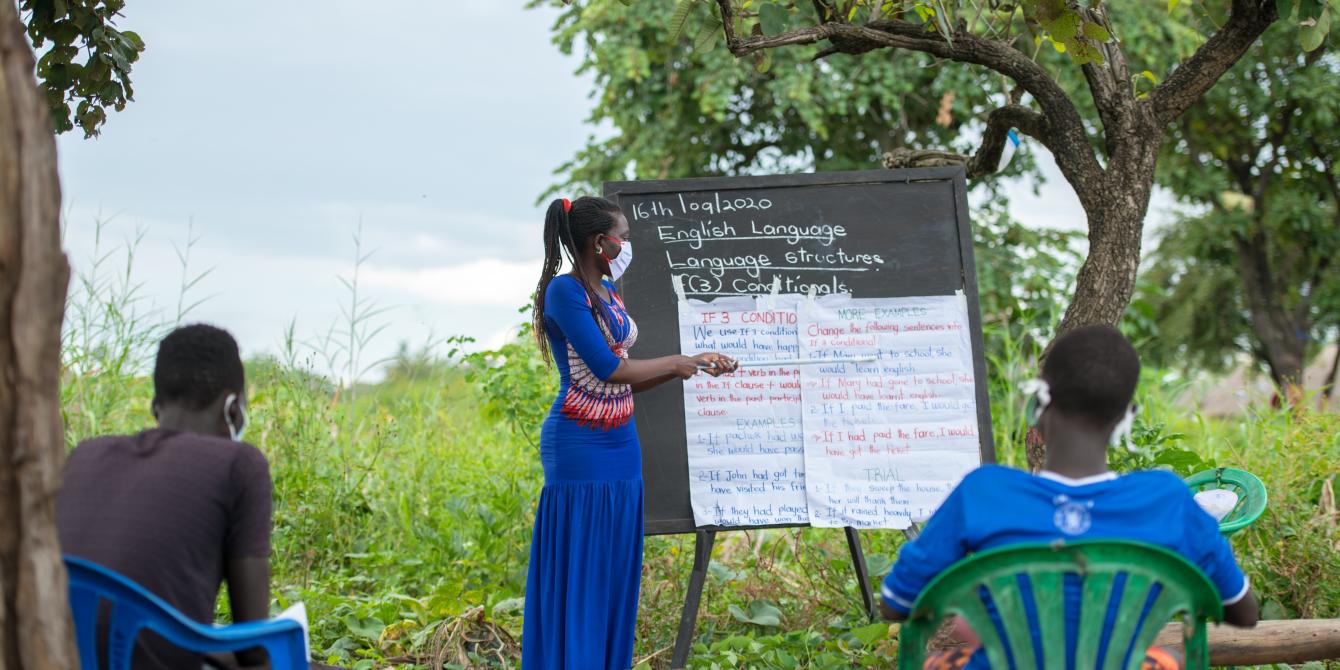 16th/09/2020
English Language
Language structures
If(3) Conditionals.
IF 3 CONDITIO
We use If 3 condition
what would have happ
condition had
verb in the p
in the If clause + would
verb in the past particip
clause.
EXAMPLES
1- If had
she would have pass
2- If John had got
have visited his frie
3- If they had played
would have won the
MORE EXAMPLES
Change the following sentences into
If 3 conditional
1- If Mary went to school, she
would learn english.
If Mary had gone to school, she
would have learnt english.
2- If I paid the fare, I would get
the ticket.
If I had paid the fare, I would
have got the ticket.
TRIAL
1- If they sweep the house,
her will thank them.
2- If it rained heavily, I
to market